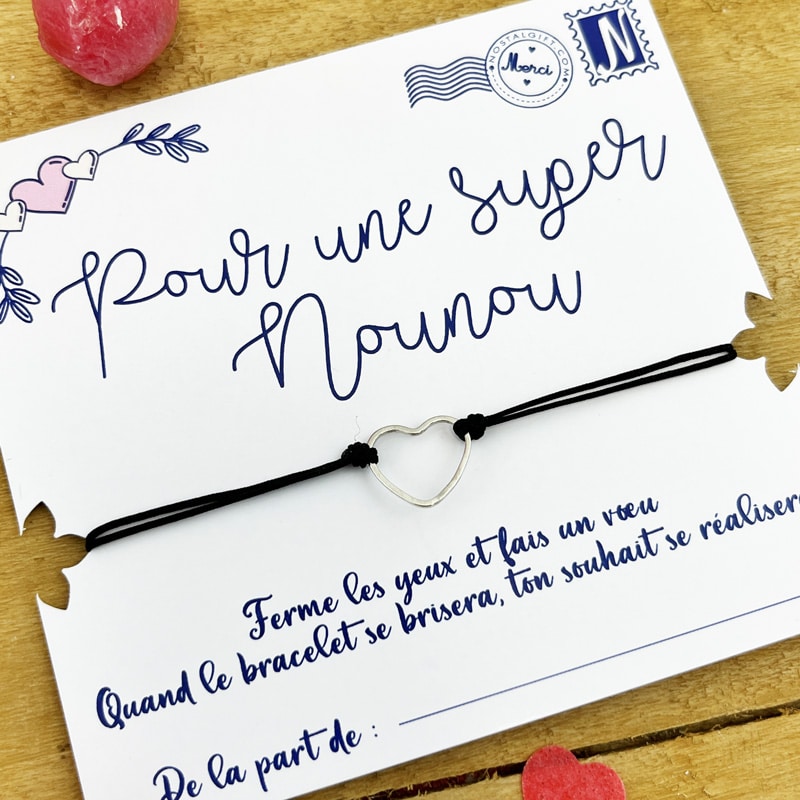 NOSTALGIFT.COM
Merci
N
Pour une super
Nounou
Ferme les yeux et fais un vœu
Quand le bracelet se brisera, ton souhait se réaliser
De la part de :